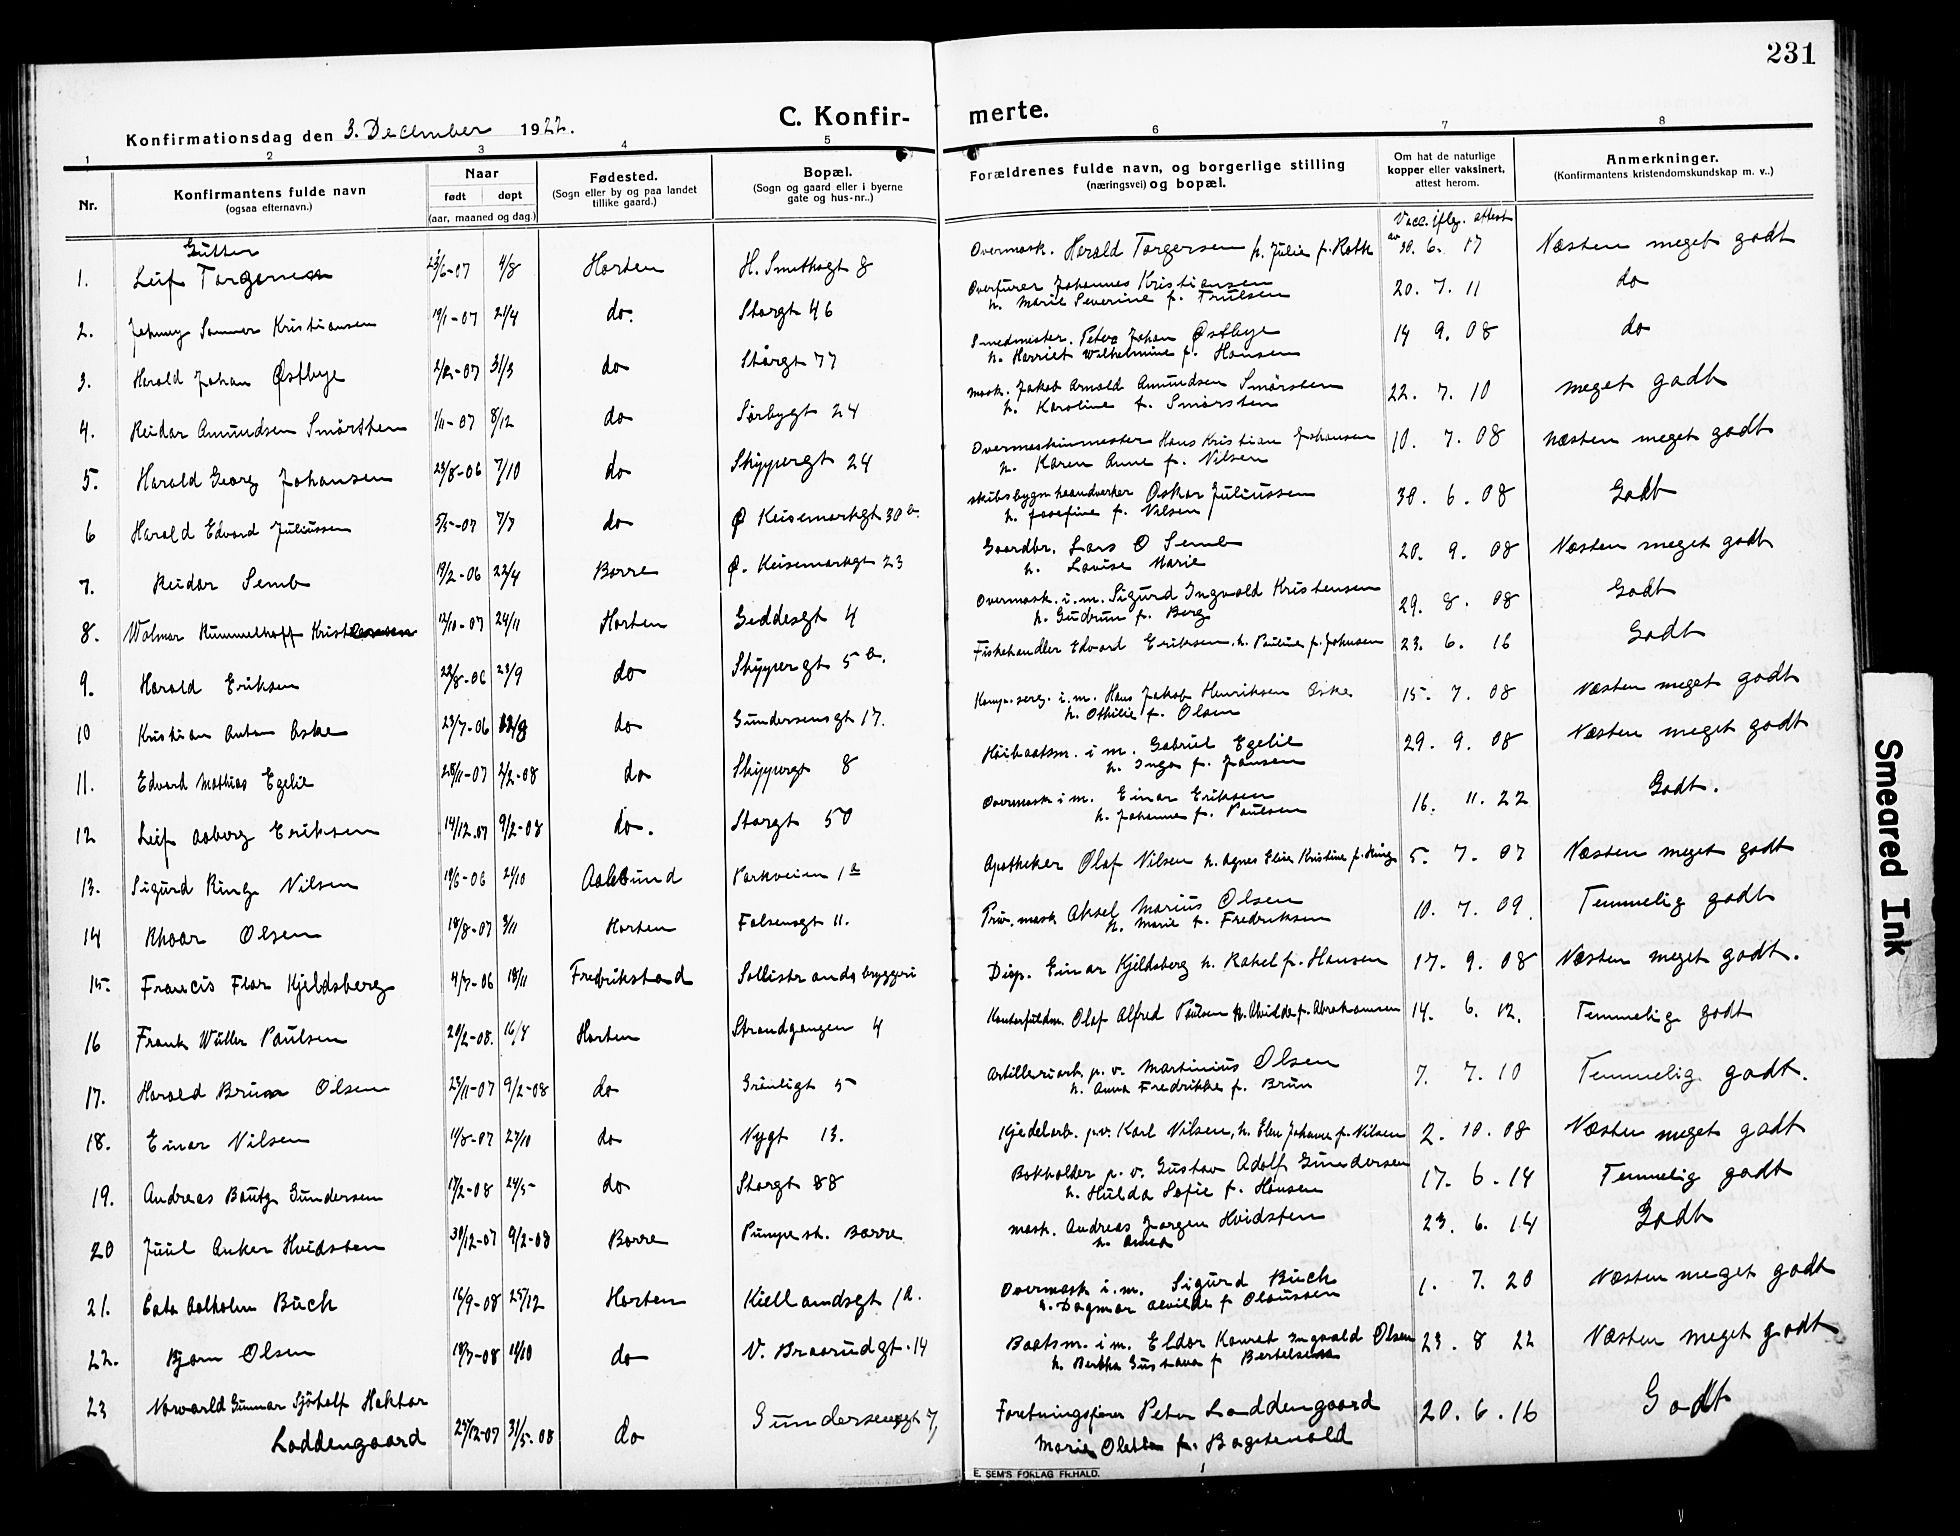 231
Konfirmationsdag den 3. December 1922.
C. Konfir-
merte.
1 2 3 4 5 6 7 8
Nr.
Konfirmantens fulde navn
(ogsaa efternavn.)
Naar
født døpt
(aar, maaned og dag.)
Fødested.
(Sogn eller by og paa landet
tillike gaard.)
Bopæl.
(Sogn og gaard eller i byerne
gate og hus-nr..)
Forældrenes fulde navn, og borgerlige stilling
(næringsvei) og bopæl.
Om hat de naturlige
kopper eller vaksinert,
attest herom.
Anmerkninger.
(Konfirmantens kristendomskundskap m. v..)
Gutter
Vacc. iflg. attest
av
1. Leif Torgersen 23/6-07 4/8 Horten H. Smithsgt 8 Overmask. Harald Torgersen h. Julie f. 30. 6. 17 Næsten meget godt
2. Johnny Sommer Kristiansen 19/1-07 21/4 do. Storgt 46 Overfurer Johannes Kristiansen 20. 7. 11 do
h. Marie Severine f. Trulsen
3. Harald Johan Østbye 31/3 do Storgt 77 Smedmester. Peter Johan Østbye 14 9. 08 do
h. Harriet Wilhelmine f. Hansen
4. Reidar Amundsen Smørsten 1/11-07 8/12 do Sørbygt 24 mask. Jakob Arnold Amundsen Smørsten 22. 7. 10 meget godt
h. Karoline f. Smørsten
5. Harald Georg Johansen 23/8-06 7/10 do Skippergt 24 Overmaskinmester Hans Kristian Johansen 10. 7. 08 næsten meget godt
h. Karen Anne f. Nilsen
6 Harald Edvard Juliussen 5/5-07 7/7 do Ø Keisemarkgt 30 b. skibsbygn haandverker Oskar Juliussen 30. 6. 08 Godt
h. Josefine f. Nilsen
7. Reidar Semb 19/2-06 22/4 Borre Ø. Keisemarkgt 23 Gaardbr. Lars O Semb 20. 9. 08 Næsten meget godt
h. Lovise Marie
8. Walmar Rummelhoff Kristensen 12/10-07 24/11 Horten Geddesgt 4 Overmask. i. m. Sigurd Ingvald Kristensen 29. 8. 08 Godt
h. Gudrun f. Berg
9. Harald Eriksen 22/8-06 23/9 do Skippergt 5 b. Fiskehandler Edvard Eriksen, h. Pauline f. Johnsen 23. 6. 16 Godt
10 Kristian Anton Aske 23/7-06 do Gundersensgt 17. Komp. serg. i. m. Hans Jakob Henriksen Aske 15. 7. 08 Næsten meget godt
h. Othilie f. Olsen
11. Edvard Mathias Egelie 28/11-07 2/2-08 do Skippergt 8 Høibaatsm. i m. Gabriel Egelie 29. 9. 08 Næsten meget godt
h. Inga f. Jansen
12 Leif Aaberg Eriksen 14/12.07 9/2-08 do. Storgt 50 Overmask i m. Einar Eriksen 16. 11. 22 Godt.
h. Johanne f. Paulsen
13. Sigurd Ringe Nilsen 19/6-06 21/10 Aalesund Parkveien 1 a Apotheker Olaf Nilsen h. Agnes Elise Kristine f. Ringe 5. 7. 07 Næsten meget godt
14 Rhoar Olsen 18/8-07 3/11 Horten Falsensgt 11. Priv. mask Aksel Marius Olsen 10. 7. 09. Temmelig godt
h. Marie f. Fredriksen
15. Francis Flor Kjeldsberg 4/7-06 18/11 Fredrikstad Sollistrands bryggeri Disp. Einar Kjeldsberg h. Rakel f. Hansen 17. 9. 08 Næsten meget godt.
16 Frank Wüller Paulsen 20/2-08. 16/8 Horten Strandgangen 4 Kontorfuldm. Olaf Alfred Paulsen h. Alvilde f. Abrahamsen 14. 6. 12. Temmelig godt
17. Harald Brun Olsen 23/11-07 9/2-08 do Grønligt 5 Artilleriarb. p. v. Martinius Olsen 7. 7. 10 Temmelig godt.
h. Anna Fredrikke f. Brun
18. Einar Nilsen 11/8-07 27/10 do Nygt 13. Kjedelarb. p.v. Karl Nilsen, h. Elen Johanne f. Nilsen 2. 10. 08 Næsten meget godt
19. Andreas Bautz Gundersen 17/2-08 24/5- do Storgt 88 Bokholder p. v. Gustav Adolf Gundersen 17. 6. 14 Temmelig godt
h. Hulda Sofie f. Hansen
20 Juul Anker Hvidsten 30/12-07 9/2-08 Borre Pumpe st. Borre mask. Andreas Jørgen Hvidsten 23. 6. 14 Godt
h. Anna
21. Cato Aalholm Buch 16/9-08 25/12 Horten Kiellandsgt 1a. Overmask i. m. Sigurd Buch 1. 7. 20 Næsten meget godt
h. Dagmar Alvilde f Olaussen
22. Bjørn Olsen 19/7-08 18/10 do V. Braarudgt. 14 Baatsm. i m. Eldor Konrat Ingvald Olsen 23. 8 22 Næsten meget godt
h. Bertha Gustava f Bertelsen
23 Norvarld Gunnar Sjötolf Hektor
Loddengaard 25/12-07 31/5-08 do Gundersensgt 7, Forretningsfører Peter Loddengaard 20. 6. 16 Godt
Marie Oletta f.
E. SEM'S FORLAG FR.HALD.
Smeared Ink